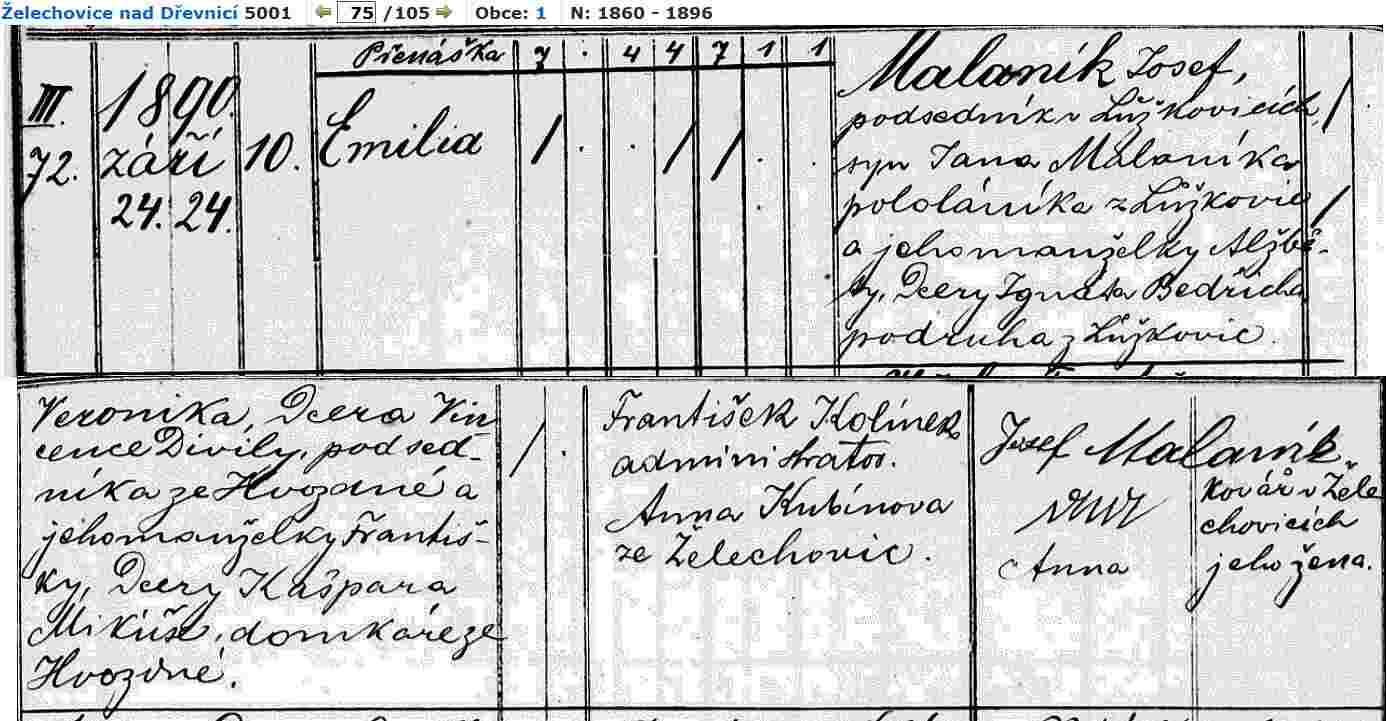 Želechovice nad Dřevnicí 5001 75 /105 Obce: 1 N: 1860 - 1896
Přenáška 7 . 4 4 7 1 1
III. 1890. Malaník Josef,
podsedník v Lůžkovicích,
72. září 10. Emilia / . . / / . .
syn Jana Malaníka
24. 24. pololáníka z Lůžkovic
a jeho manželky Alžbě-
ty, Dcery Ignáta Bedřicha
podruha z Lůžkovic.
Veronika, Dcera Vin
cence Divily, podsed-
níka ze Hvozdné a
jeho manželky Františ-
ky, Dcery Kašpara
Mikúše, domkáře ze
Hvozdné.
František Kolínek
administrator.
Anna Kubínova
ze Želechovic.
Josef Malaník
kovář v Žele
chovicích
Anna jeho žena.